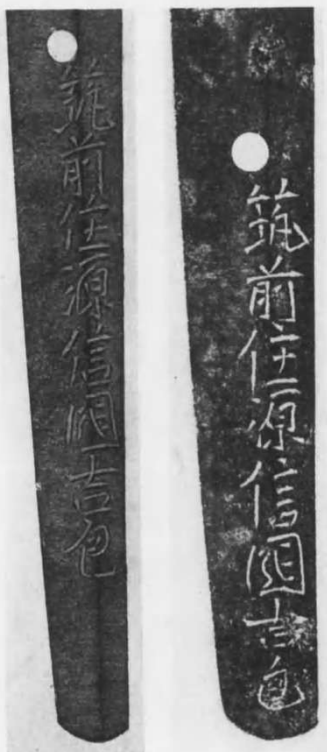 筑前住源信國吉包
筑前住源信國吉包